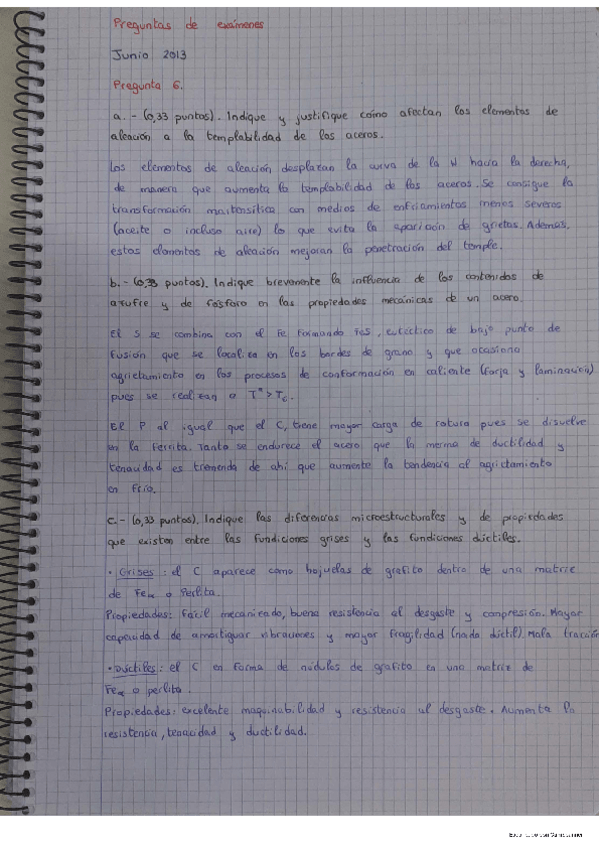 Preguntas de exámenes
Junio 2013
Pregunta 6.
a.- (0,33 puntos). Indique y justifique cómo afectan los elementos de
aleación a la templabilidad de los aceros.
Los elementos de aleación desplazan la curva de la W hacia la derecha,
de manera que aumenta la templabilidad de los aceros. Se consigue la
transformación martensítica con medios de enfriamientos menos severos
(aceite o incluso aire) lo que evita la aparición de grietas. Además,
estos elementos de aleación mejoran la penetración del temple.
b.- (0,33 puntos). Indique brevemente la influencia de los contenidos de
azufre y de fósforo en las propiedades mecánicas de un acero.
El S se combina con el Fe formando FeS, eutéctico de bajo punto de
fusión que se localiza en los bordes de grano y que ocasiona
agrietamiento en los procesos de conformación en caliente (forja y laminación)
pues se realizan a Tª > Tc.
El P al igual que el C, tiene mayor carga de rotura pues se disuelve
en la ferrita. Tanto se endurece el acero que la merma de ductilidad y
tenacidad es tremenda de ahí que aumente la tendencia al agrietamiento
en frío.
c.- (0,33 puntos). Indique las diferencias microestructurales y de propiedades
que existen entre las fundiciones grises y las fundiciones dúctiles.
· Grises: el C aparece como hojuelas de grafito dentro de una matriz
de Feα o Perlita.
Propiedades: Fácil mecanizado, buena resistencia al desgaste y compresión. Mayor
capacidad de amortiguar vibraciones y mayor fragilidad (nada dúctil). Mala tracción
· Dúctiles: el C en forma de nódulos de grafito en una matriz de
Feα o perlita.
Propiedades: excelente maquinabilidad y resistencia al desgaste. Aumenta la
resistencia, tenacidad y ductilidad.